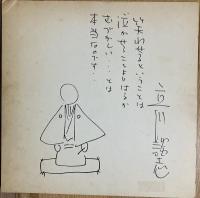 笑わせるということは
泣かせることよりはるか
むづかしい‥‥とは
本当なのです‥‥
立川談志